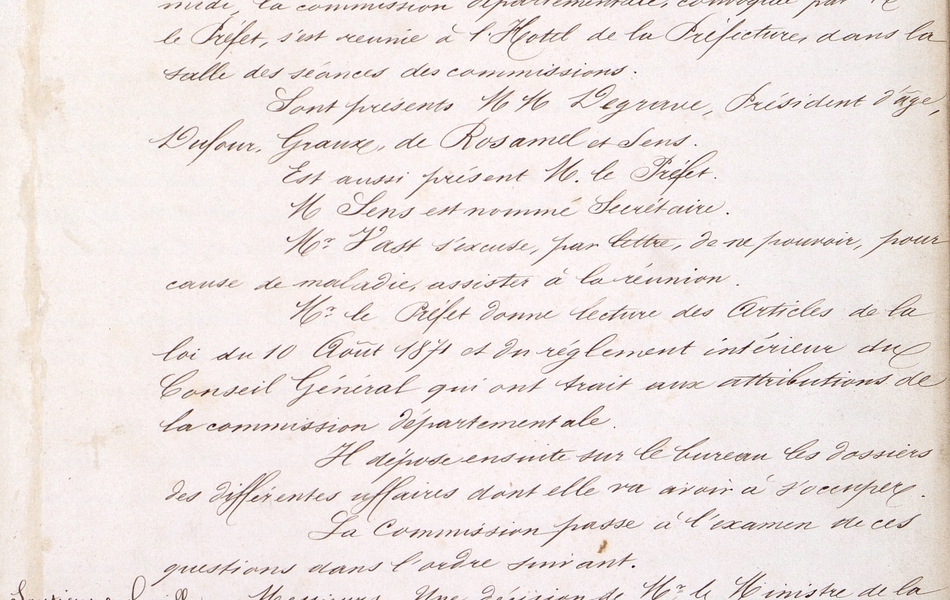 midi, la commission départementale, convoquée par
le Préfet, s'est réunie à l'Hotel de la Préfecture, dans la
salle des séances des commissions.
Sont présents M M Degrave, Président d'âge,
Dufour, Graux, de Rosamel et Sens.
Est aussi présent M. le Préfet.
M Sens est nommé Secrétaire.
Mr Vast s'excuse, par lettre, de ne pouvoir, pour
cause de maladie, assister à la réunion.
Mr le Préfet donne lecture des Articles de la
loi du 10 Août 1871 et du réglement intérieur du
Conseil Général qui ont trait aux attributions de
la commission départementale.
Il dépose ensuite sur le bureau les dossiers
des différentes affaires dont elle va avoir à s'occuper.
La Commission passe à l'examen de ces
questions dans l'ordre suivant.
Messieurs, Une décision de Mr le Ministre de la